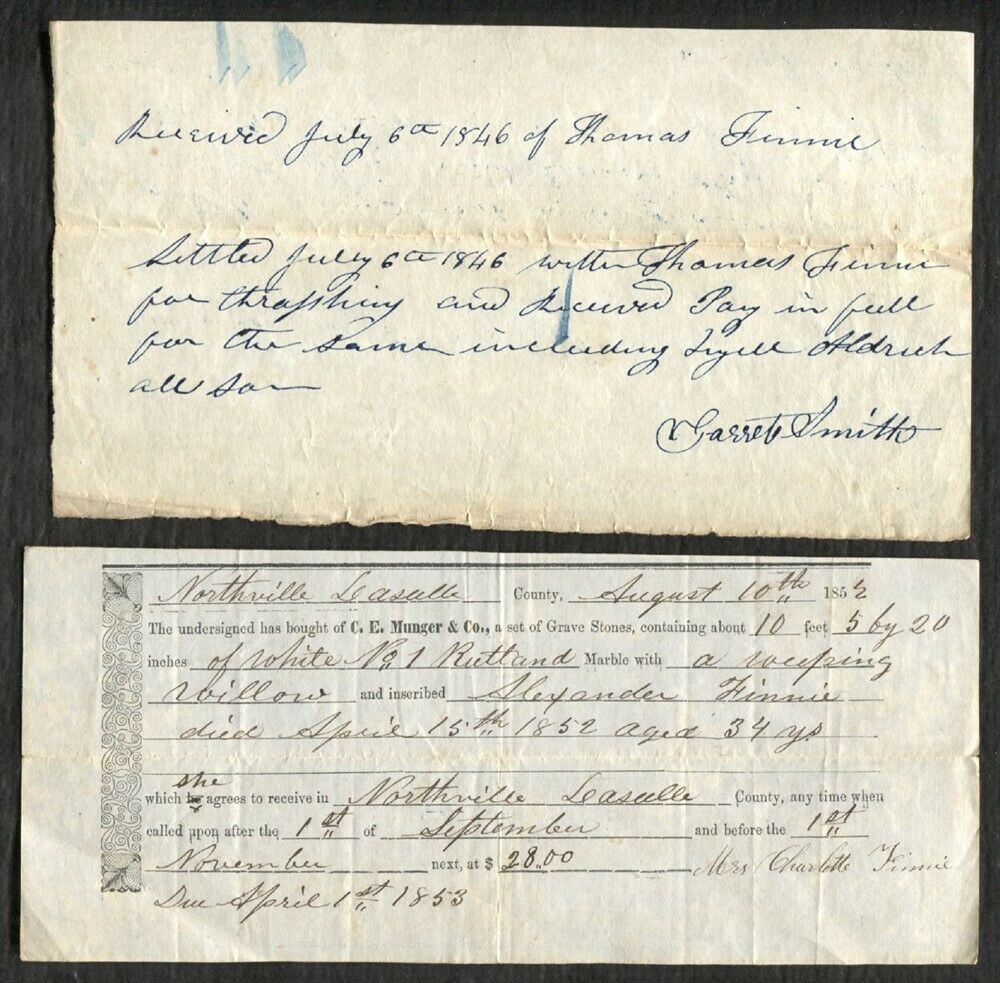 Received July 6th 1846 of Thomas Finnie
Settled July 6th 1846 with Thomas Finnie
for thrashing and Received Pay in full
for the same including Aldrich
all so
Garret Smith
Northville Lasalle County, August 10th 1852
The undersigned has bought of C. E. Munger & Co., a set of Grave Stones, containing about 10 feet 5 by 20
inches of white No 1 Rutland Marble with a weeping
willow and inscribed Alexander Finnie
died April 15th 1852 aged 34 ys
she
which he agrees to receive in Northville Lasalle County, any time when
called upon after the 1st of September and before the 1st
November next, at $ 28.00 Mrs Charlotte Finnie
Due April 1st 1853